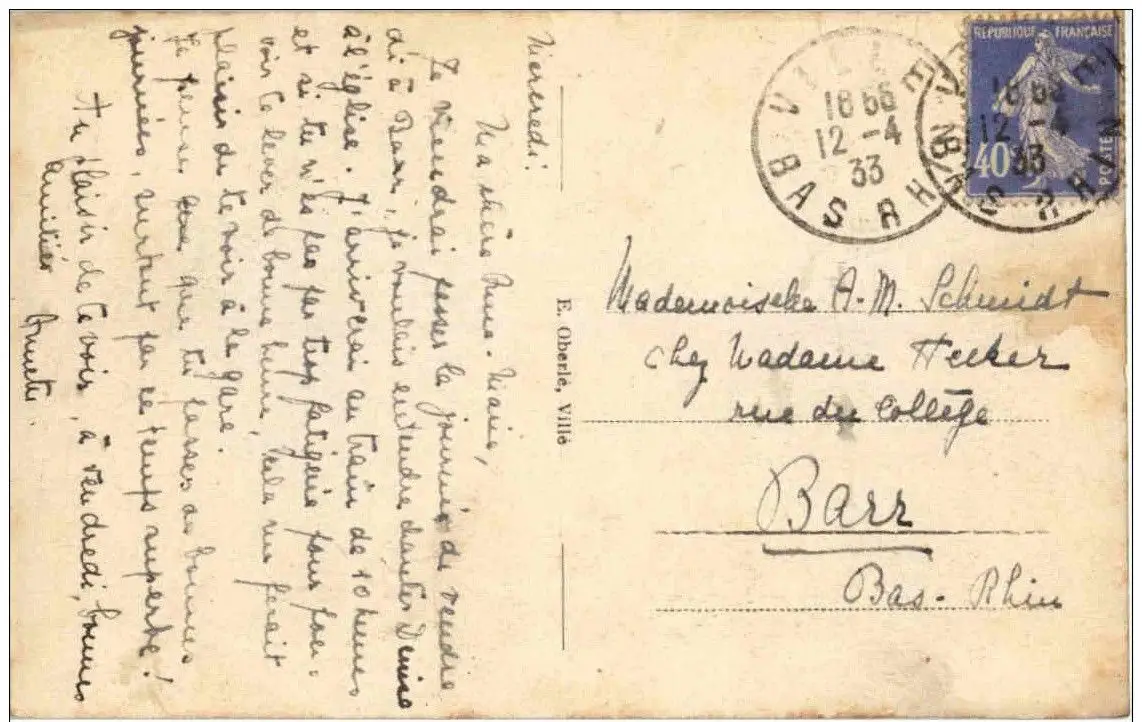 Mercredi.
Ma chère Anne-Marie,
Je viendrai passer la journée de vendre
di à Barr, je voulais entendre chanter Denise
à l'église. J'arriverai au train de 10 heures
et si tu n'es pas trop fatiguée pour
te lever de bonne heure, cela me ferait
plaisir de te voir à la gare.
Je pense que tu passes de bonnes
journées, surtout par ce temps superbe!
Au plaisir de te voir, à vendredi, bonnes
amitiés
Annette.
E. Oberlé, Villé
VILLÉ
18 55
12 -4
33
BAS RH
RÉPUBLIQUE FRANÇAISE
40
POSTES
Mademoiselle A.M. Schmidt
chez Madame Hecker
rue du Collège
Barr
Bas-Rhin